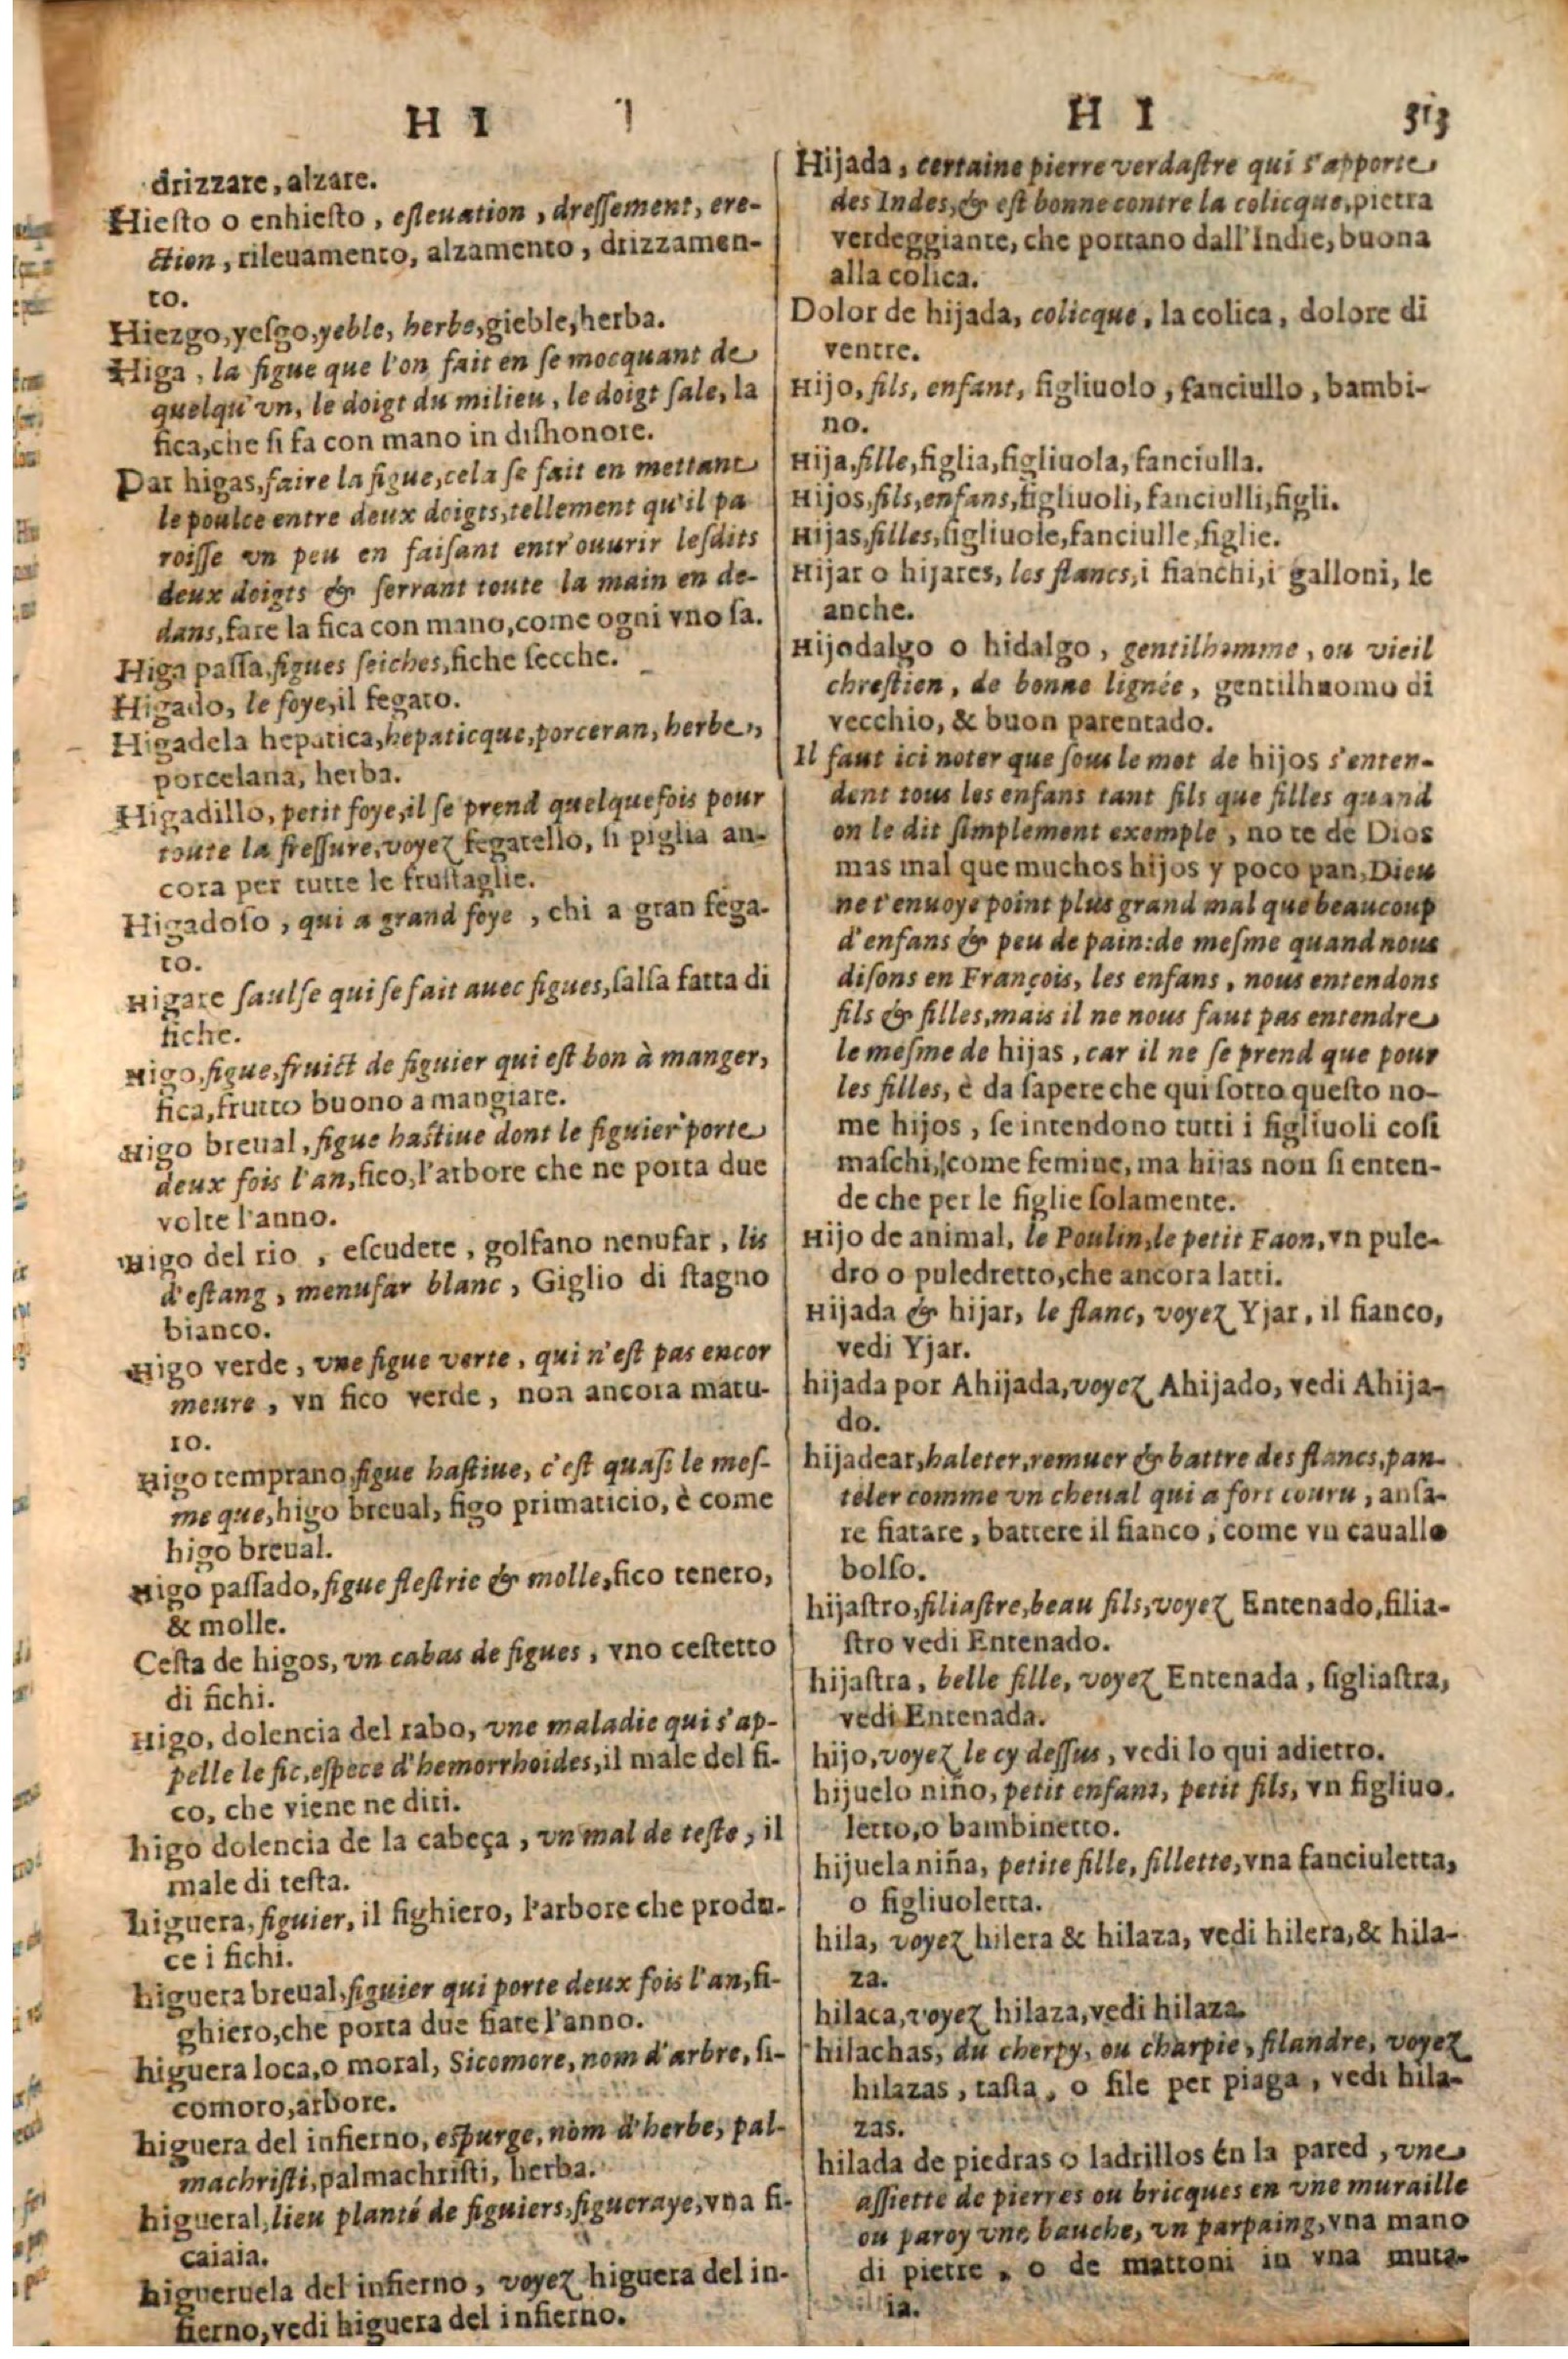 H I
drizzare, alzare.
Hieſto o enhieſto, eſleuation, dreſſement, ere-
ction, rileuamento, alzamento, drizzamen-
to.
Hiezgo, yeſgo, yeble, herbe, gieble, herba.
Higa, la figue que l'on fait en ſe mocquant de
quelqu'vn, le doigt du milieu, le doigt ſale, la
fica, che ſi fa con mano in diſhonore.
Dar higas, faire la figue, cela ſe fait en mettant
le poulce entre deux doigts, tellement qu'il pa
roiſſe vn peu en faiſant entr'ouurir leſdits
deux doigts & ſerrant toute la main en de-
dans, fare la fica con mano, come ogni vno ſa.
Higa paſſa, figues ſeiches, fiche ſecche.
Higado, le foye, il fegato.
Higadela hepatica, hepaticque, porceran, herbe,
porcelana, herba.
Higadillo, petit foye, il ſe prend quelquefois pour
toute la freſſure, voyez fegatello, ſi piglia an-
cora per tutte le fruſtaglie.
Higadoſo, qui a grand foye, chi a gran fega-
to.
Higate ſaulſe qui ſe fait auec figues, ſalſa fatta di
fiche.
Higo, figue, fruict de figuier qui eſt bon à manger,
fica, frutto buono a mangiare.
Higo breual, figue haſtiue dont le figuier porte
deux fois l'an, fico, l'arbore che ne porta due
volte l'anno.
Higo del rio, eſcudete, golfano nenufar, lis
d'eſtang, menufar blanc, Giglio di ſtagno
bianco.
Higo verde, vne figue verte, qui n'eſt pas encor
meure, vn fico verde, non ancora matu-
ro.
Higo temprano, figue haſtiue, c'eſt quaſi le meſ-
me que, higo breual, figo primaticio, è come
higo breual.
Higo paſſado, figue fleſtrie & molle, fico tenero,
& molle.
Ceſta de higos, vn cabas de figues, vno ceſtetto
di fichi.
Higo, dolencia del rabo, vne maladie qui s'ap-
pelle le fic, eſpece d'hemorrhoides, il male del fi-
co, che viene ne diti.
higo dolencia de la cabeça, vn mal de teſte, il
male di teſta.
higuera, figuier, il fighiero, l'arbore che produ-
ce i fichi.
higuera breual, figuier qui porte deux fois l'an, fi-
ghiero, che porta due fiate l'anno.
higuera loca, o moral, Sicomore, nom d'arbre, ſi-
comoro, arbore.
higuera del infierno, eſpurge, nom d'herbe, pal-
machriſti, palmachriſti, herba.
higueral, lieu planté de figuiers, figueraye, vna fi-
caiaia.
higueruela del infierno, voyez higuera del in-
fierno, vedi higuera del infierno.
H I 313
Hijada, certaine pierre verdaſtre qui s'apporte
des Indes, & eſt bonne contre la colicque, pietra
verdeggiante, che portano dall'Indie, buona
alla colica.
Dolor de hijada, colicque, la colica, dolore di
ventre.
Hijo, fils, enfant, figliuolo, fanciullo, bambi-
no.
Hija, fille, figlia, figliuola, fanciulla.
Hijos, fils, enfans, figliuoli, fanciulli, figli.
Hijas, filles, figliuole, fanciulle, figlie.
Hijar o hijares, les flancs, i fianchi, i galloni, le
anche.
Hijodalgo o hidalgo, gentilhomme, ou vieil
chreſtien, de bonne lignée, gentilhuomo di
vecchio, & buon parentado.
Il faut ici noter que ſous le mot de hijos s'enten-
dent tous les enfans tant fils que filles quand
on le dit ſimplement exemple, no te de Dios
mas mal que muchos hijos y poco pan, Dieu
ne t'enuoye point plus grand mal que beaucoup
d'enfans & peu de pain: de meſme quand nous
diſons en François, les enfans, nous entendons
fils & filles, mais il ne nous faut pas entendre
le meſme de hijas, car il ne ſe prend que pour
les filles, è da ſapere che qui ſotto queſto no-
me hijos, ſe intendono tutti i figliuoli coſi
maſchi, come femine, ma hijas non ſi enten-
de che per le figlie ſolamente.
Hijo de animal, le Poulin, le petit Faon, vn pule-
dro o puledretto, che ancora latti.
Hijada & hijar, le flanc, voyez Yjar, il fianco,
vedi Yjar.
hijada por Ahijada, voyez Ahijado, vedi Ahija-
do.
hijadear, haleter, remuer & battre des flancs, pan-
teler comme vn cheual qui a fort couru, anſa-
re fiatare, battere il fianco, come vn cauallo
bolſo.
hijaſtro, filiaſtre, beau fils, voyez Entenado, filia-
ſtro vedi Entenado.
hijaſtra, belle fille, voyez Entenada, figliaſtra,
vedi Entenada.
hijo, voyez le cy deſſus, vedi lo qui adietro.
hijuelo niño, petit enfant, petit fils, vn figliuo.
letto, o bambinetto.
hijuela niña, petite fille, fillette, vna fanciuletta,
o figliuoletta.
hila, voyez hilera & hilaza, vedi hilera, & hila-
za.
hilaca, voyez hilaza, vedi hilaza.
hilachas, du cherpy, ou charpie, filandre, voyez
hilazas, taſta, o file per piaga, vedi hila-
zas.
hilada de piedras o ladrillos en la pared, vne
aſſiette de pierres ou bricques en vne muraille
ou paroy vne bauche, vn parpaing, vna mano
di pietre, o de mattoni in vna mura-
ia.